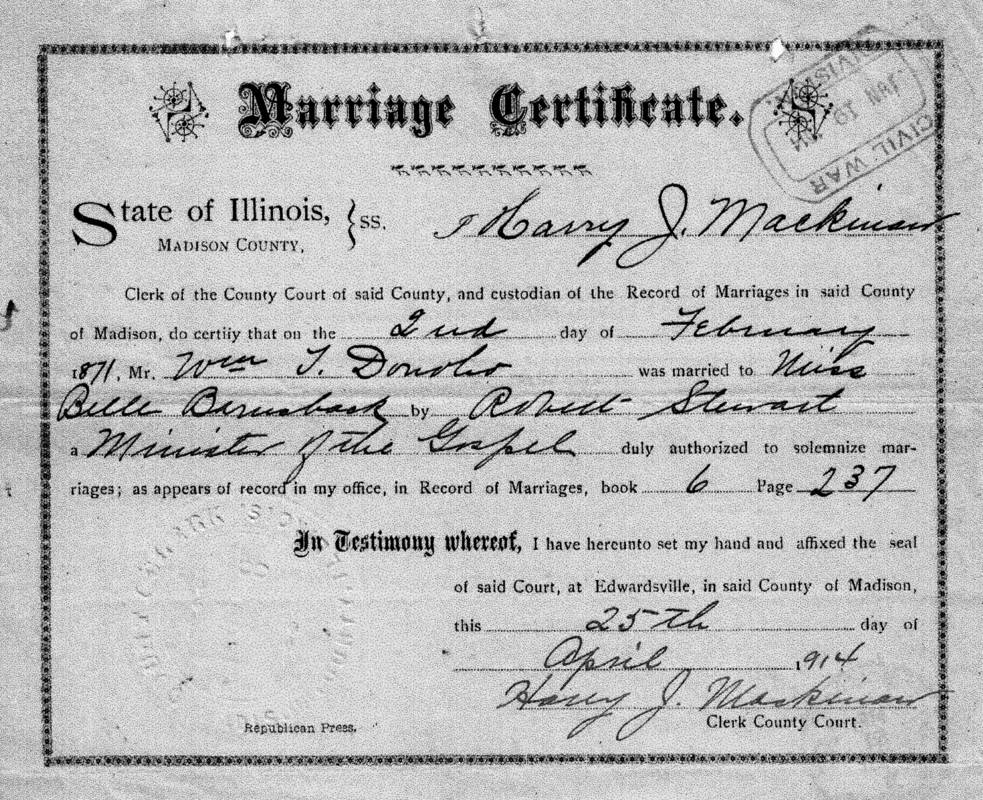 Marriage Certificate.
CIVIL WAR
DIVISION
JAN 19
State of Illinois, } ss. I Harry J. Mackinaw
MADISON COUNTY,
Clerk of the County Court of said County, and custodian of the Record of Marriages in said County
of Madison, do certify that on the 2nd day of February
1871, Mr. Wm T. Donoho was married to Miss
Belle Barnsback by Robert Stewart
a Minister of the Gospel duly authorized to solemnize mar-
riages; as appears of record in my office, in Record of Marriages, book 6 Page 237
In Testimony whereof, I have hereunto set my hand and affixed the seal
of said Court, at Edwardsville, in said County of Madison,
this 25th day of
April 1914
Harry J. Mackinaw
Clerk County Court.
Republican Press.